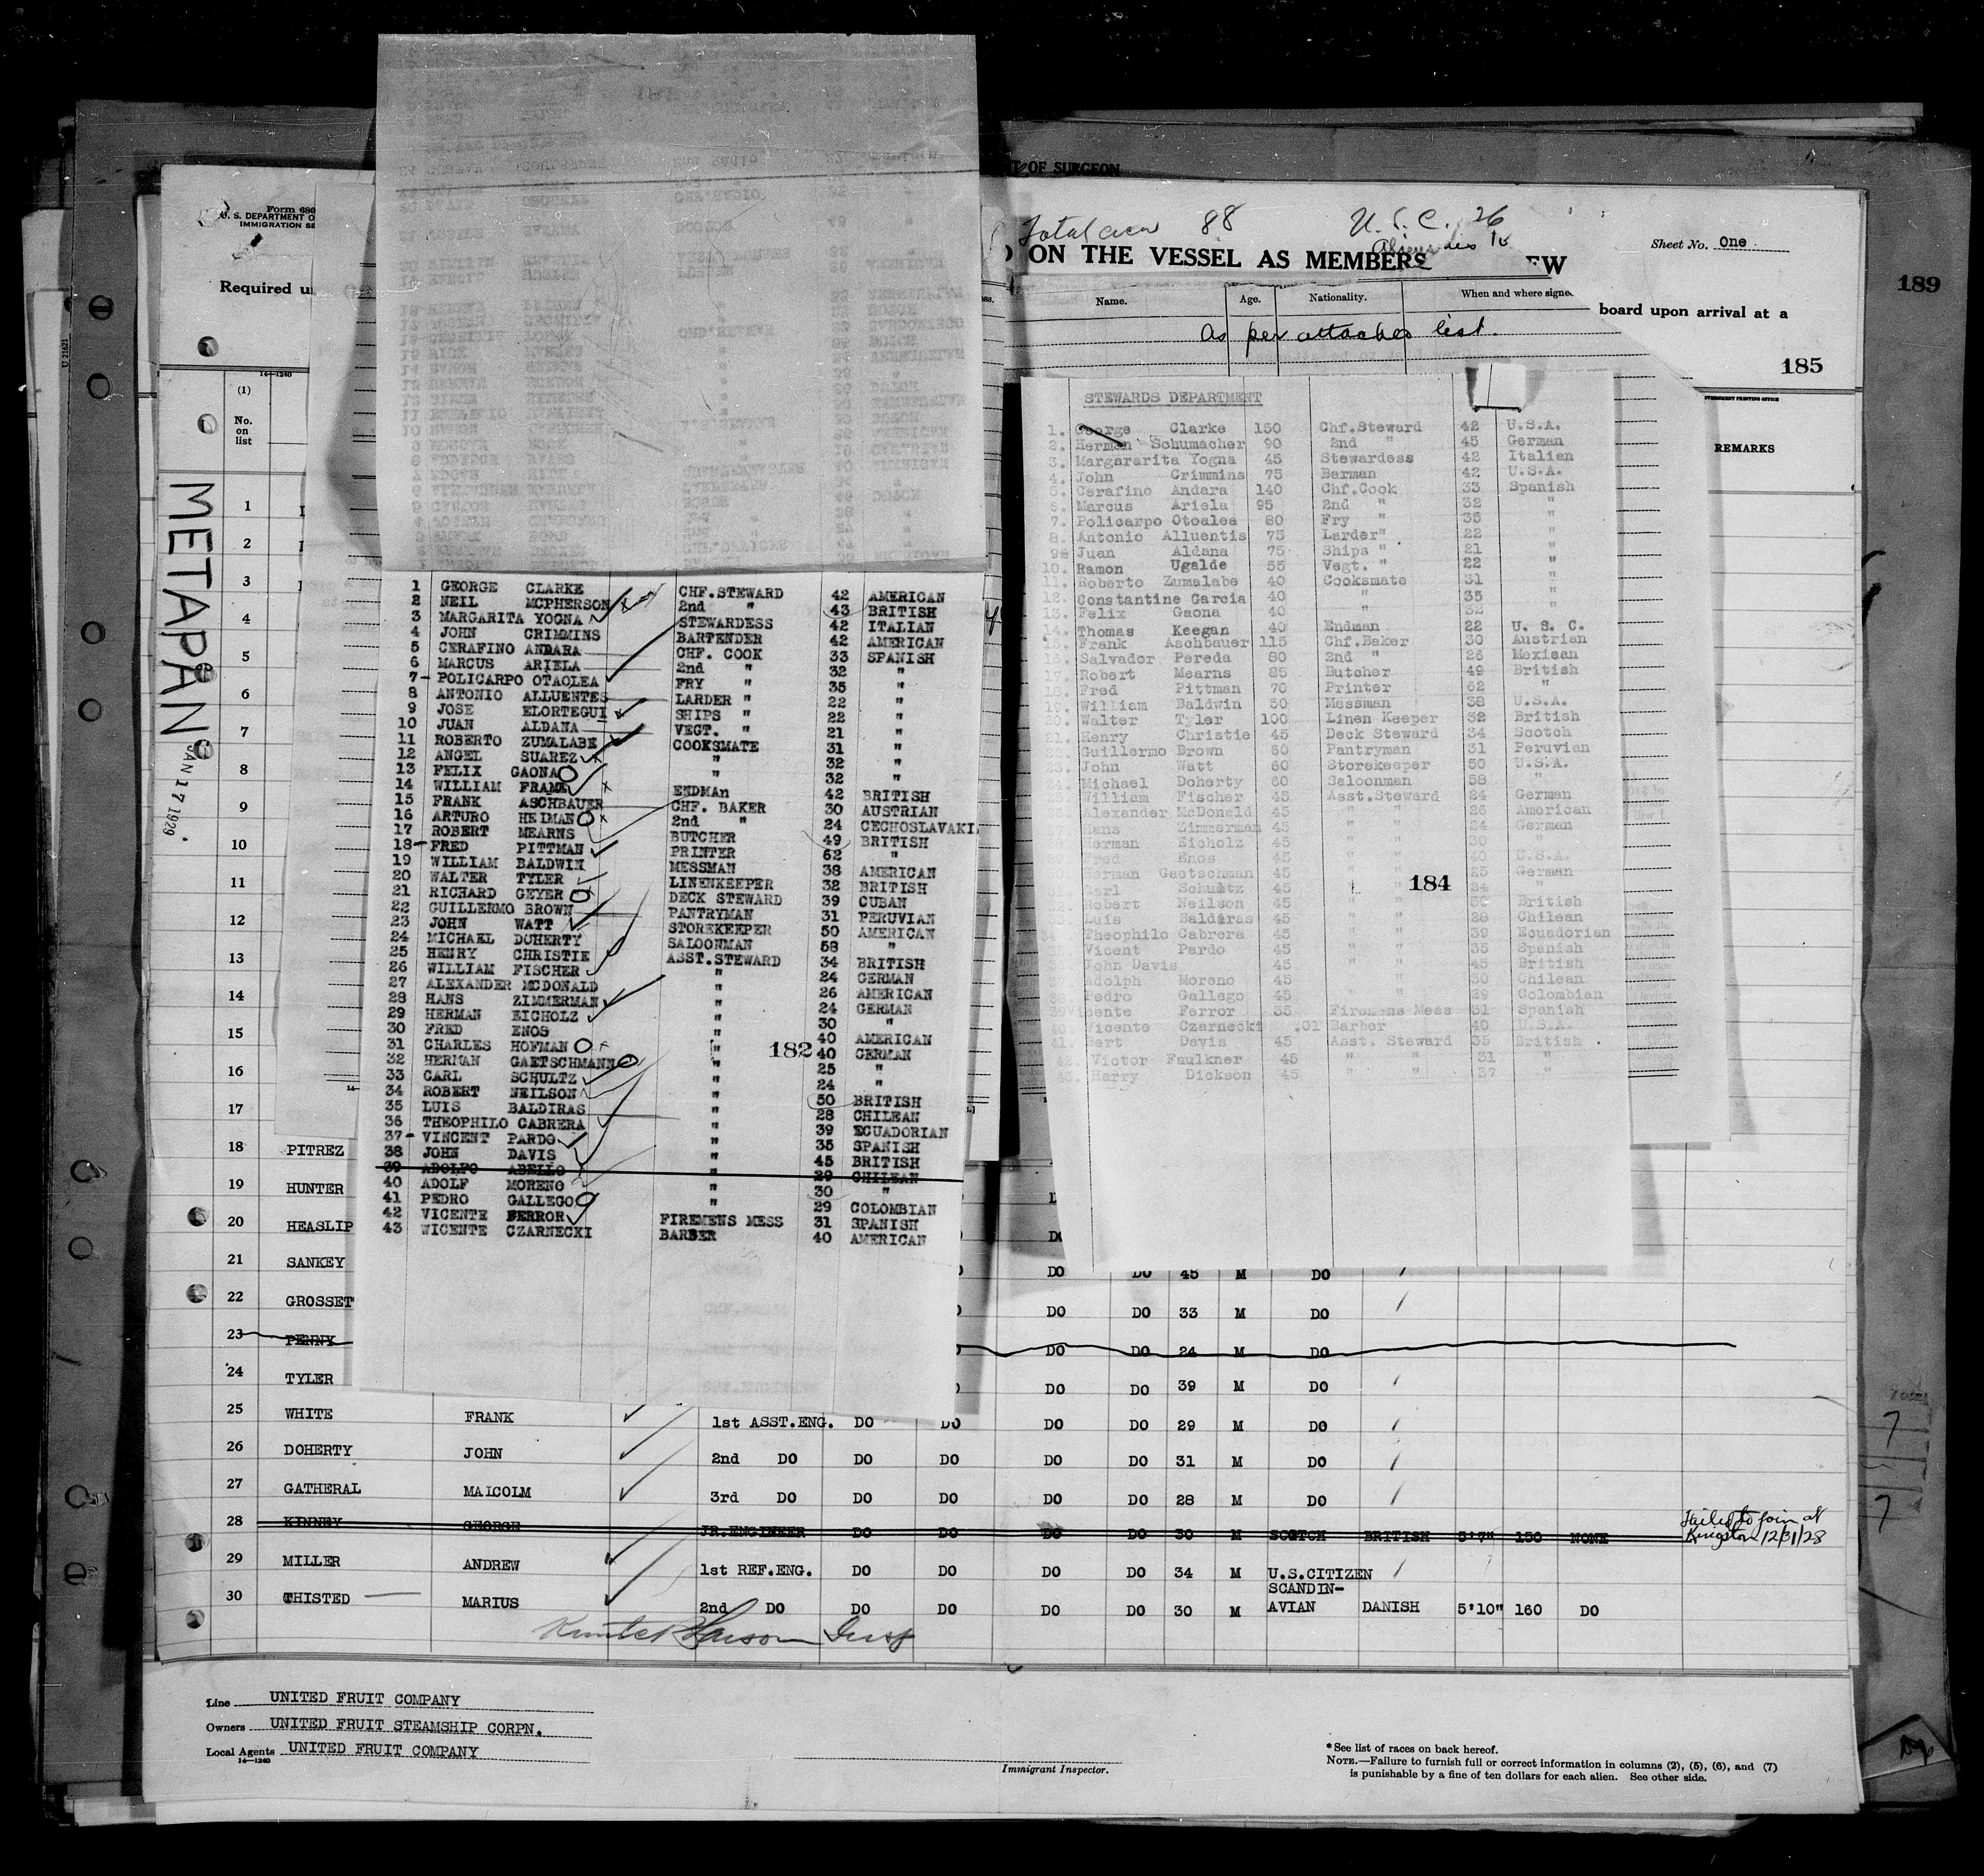 Form 680
U. S. DEPARTMENT O
IMMIGRATION SE
Required u
14—1240
(1)
No.
on
list
METAPAN
JAN 17 1929
T OF SURGEON
Total crew 88 U.S.C. 26
ON THE VESSEL AS MEMBERS EW
Sheet No. One
189
board upon arrival at a
185
REMARKS
Name. Age. Nationality. When and where signe
As per attached list.
1 GEORGE CLARKE CHF.STEWARD 42 AMERICAN
2 NEIL MCPHERSON 2nd " 43 BRITISH
3 MARGARITA YOGNA STEWARDESS 42 ITALIAN
4 JOHN CRIMMINS BARTENDER 42 AMERICAN
5 CERAFINO ANDARA CHF. COOK 33 SPANISH
6 MARCUS ARIELA 2nd " 32 "
7 POLICARPO OTAOLEA FRY " 35 "
8 ANTONIO ALLUENTES LARDER " 22 "
9 JOSE ELORTEGUI SHIPS " 22 "
10 JUAN ALDANA VEGT. " 21 "
11 ROBERTO ZUMALABE COOKSMATE 31 "
12 ANGEL SUAREZ " 32 "
13 FELIX GAONA " 32 "
14 WILLIAM FRAME ENDMAn 42 BRITISH
15 FRANK ASCHBAUER CHF. BAKER 30 AUSTRIAN
16 ARTURO HEIMAN 2nd " 24 CECHOSLAVAKI
17 ROBERT MEARNS BUTCHER 49 BRITISH
18 FRED PITTMAN PRINTER 62 "
19 WILLIAM BALDWIN MESSMAN 38 AMERICAN
20 WALTER TYLER LINENKEEPER 32 BRITISH
21 RICHARD GEYER DECK STEWARD 39 CUBAN
22 GUILLERMO BROWN PANTRYMAN 31 PERUVIAN
23 JOHN WATT STOREKEEPER 50 AMERICAN
24 MICHAEL DOHERTY SALOONMAN 58 "
25 HENRY CHRISTIE ASST.STEWARD 34 BRITISH
26 WILLIAM FISCHER " 24 GERMAN
27 ALEXANDER MCDONALD " 26 AMERICAN
28 HANS ZIMMERMAN " 24 GERMAN
29 HERMAN EICHOLZ " 30 "
30 FRED ENOS " 40 AMERICAN
31 CHARLES HOFMAN " 40 GERMAN
182
32 HERMAN GAETSCHMANN " 25 "
33 CARL SCHULTZ " 24 "
34 ROBERT NEILSON " 50 BRITISH
35 LUIS BALDIRAS " 28 CHILEAN
36 THEOPHILO CABRERA " 39 ECUADORIAN
37 VINCENT PARDO " 35 SPANISH
38 JOHN DAVIS " 45 BRITISH
39 ADOLFO ABELLO " 29 CHILEAN
40 ADOLF MORENO " 30 "
41 PEDRO GALLEGO " 29 COLOMBIAN
42 VICENTE FERROR FIREMENS MESS 31 SPANISH
43 WICENTE CZARNECKI BARBER 40 AMERICAN
STEWARDS DEPARTMENT
1. George Clarke 150 Chf.Steward 42 U.S.A.
2. Herman Schumacher 90 2nd " 45 German
3. Margararita Yogna 45 Stewardess 42 Italian
4. John Crimmins 75 Barman 42 U.S.A.
5. Cerafino Andara 140 Chf.Cook 33 Spanish
6. Marcus Ariela 95 2nd " 32 "
7. Policarpo Otoalea 80 Fry " 35 "
8. Antonio Alluentis 75 Larder" 22 "
9 Juan Aldana 75 Ships " 21 "
10. Ramon Ugalde 55 Vegt. " 22 "
11. Roberto Zumalabe 40 Cooksmate 31 "
12. Constantine Garcia 40 " 35 "
13. Felix Gaona 40 " 32 "
14. Thomas Keegan 40 Endman 22 U. S. C.
15. Frank Aschbauer 115 Chf.Baker 30 Austrian
16. Salvador Pereda 80 2nd " 26 Mexican
17. Robert Mearns 85 Butcher 49 British
18. Fred Pittman 70 Printer 62 "
19. William Baldwin 50 Messman 38 U.S.A.
20. Walter Tyler 100 Linen Keeper 32 British
21. Henry Christie 45 Deck Steward 34 Scotch
22. Guillermo Brown 60 Pantryman 31 Peruvian
23. John Watt 60 Storekeeper 50 U.S.A.
24. Michael Doherty 60 Saloonman 58 "
William Fischer 45 Asst.Steward 24 German
Alexander McDonald 45 " " 26 American
Hans Zimmerman 45 " " 24 German
Herman Eicholz 45 " " 30 "
Fred Enos 45 " " 40 U.S.A.
Herman Gaetschman 45 " " 25 German
Carl Schultz 45 " " 24 "
184
Robert Neilson 45 " " 50 British
Luis Baldiras 45 " " 28 Chilean
Theophilo Cabrera 45 " " 39 Ecuadorian
Vicent Pardo 45 " " 35 Spanish
John Davis 45 " " 45 British
Adolph Moreno 45 " 30 Chilean
Pedro Gallego 45 " " 29 Colombian
39 Vicente Ferror 35 Firemens Mess 31 Spanish
40. Vicente Czarnecki .01 Barber 40 U.S.A.
41. Bert Davis 45 Asst. Steward 35 British
42. Victor Faulkner 45 " " 31 "
43. Harry Dickson 45 " " 37 "
1
2
3
4
5
6
7
8
9
10
11
12
13
14
15
16
17
18 PITREZ
19 HUNTER
20 HEASLIP
21 SANKEY DO DO 45 M DO
22 GROSSET DO DO 33 M DO
23 PENNY DO DO 24 M DO
24 TYLER DO DO 39 M DO
25 WHITE FRANK 1st ASST.ENG. DO DO DO DO 29 M DO
26 DOHERTY JOHN 2nd DO DO DO DO DO 31 M DO
27 GATHERAL MALCOLM 3rd DO DO DO DO DO 28 M DO
28 KINNEY GEORGE JR.ENGINEER DO DO DO DO 30 M SCOTCH BRITISH 5'7" 150 NONE Failed to join at Kingston 12/31/28
29 MILLER ANDREW 1st REF.ENG. DO DO DO DO 34 M U.S.CITIZEN
30 THISTED MARIUS 2nd DO DO DO DO DO 30 M SCANDIN-AVIAN DANISH 5'10" 160 DO
Line UNITED FRUIT COMPANY
Owners UNITED FRUIT STEAMSHIP CORPN.
Local Agents UNITED FRUIT COMPANY
14—1240
Immigrant Inspector.
* See list of races on back hereof.
NOTE.—Failure to furnish full or correct information in columns (2), (5), (6), and (7)
is punishable by a fine of ten dollars for each alien. See other side.